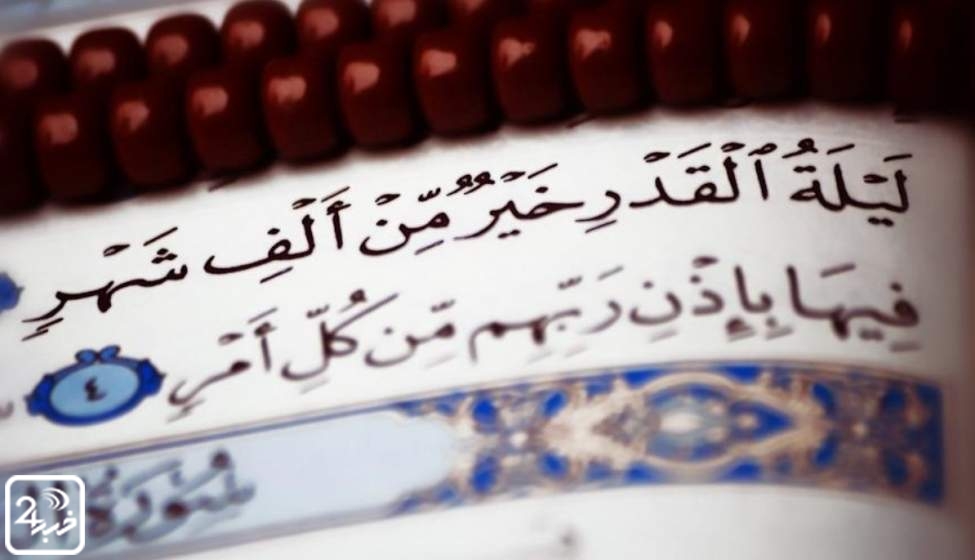 لَيْلَةُ ٱلْقَدْرِ خَيْرٌ مِّنْ أَلْفِ شَهْرٍ
فِيهَا بِإِذْنِ رَبِّهِم مِّن كُلِّ أَمْرٍ ٤
سُورَةُ
خبر 24